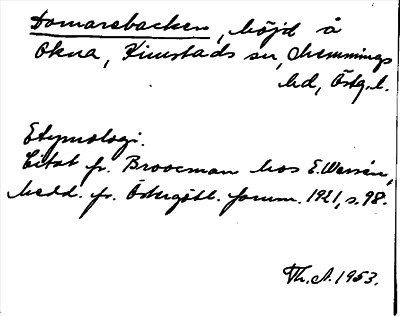 Domarebacken, höjd å
Okna, Kimstads sn, Memmings
hd, Östg.l.
Etymologi.
Citat fr. Broocman hos E. Wessén,
Medd. fr. Östergötl. fornm. 1921, s. 98.
Th. A. 1953.